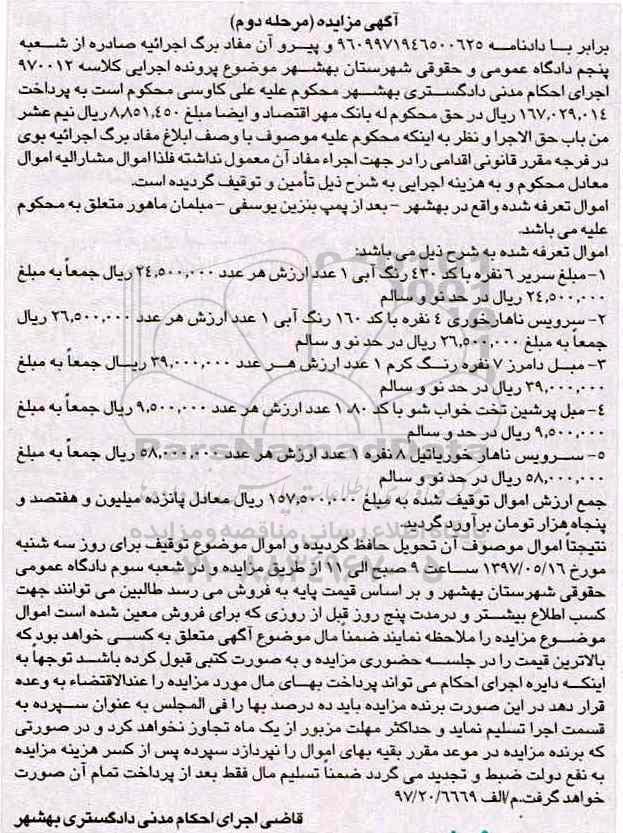 آگهی مزایده (مرحله دوم)
برابر با دادنامه ۹۶۰۹۹۷۱۹۴۶۵۰۰۶۲۵ و پیرو آن مفاد برگ اجرائیه صادره از شعبه
پنجم دادگاه عمومی و حقوقی شهرستان بهشهر موضوع پرونده اجرایی کلاسه ۹۷۰۰۱۲
اجرای احکام مدنی دادگستری بهشهر محکوم علیه علی کاوسی محکوم است به پرداخت
۱۶۷,۰۲۹,۰۱۴ ریال در حق محکوم له بانک مهر اقتصاد و ایضا مبلغ ۸,۸۵۱,۴۵۰ ریال نیم عشر
من باب حق الاجرا و نظر به اینکه محکوم علیه موصوف با وصف ابلاغ مفاد برگ اجرائیه بوی
در فرجه مقرر قانونی اقدامی را در جهت اجراء مفاد آن معمول نداشته فلذا اموال مشارالیه اموال
معادل محکوم و به هزینه اجرایی به شرح ذیل تأمین و توقیف گردیده است.
اموال تعرفه شده واقع در بهشهر – بعد از پمپ بنزین یوسفی – مبلمان ماهور متعلق به محکوم
علیه می باشد.
اموال تعرفه شده به شرح ذیل می باشد:
۱- مبلغ سریر ۶ نفره با کد ۴۳۰ رنگ آبی ۱ عدد ارزش هر عدد ۲۴,۵۰۰,۰۰۰ ریال جمعاً به مبلغ
۲۴,۵۰۰,۰۰۰ ریال در حد نو و سالم
۲- سرویس ناهارخوری ۴ نفره با کد ۱۶۰ رنگ آبی ۱ عدد ارزش هر عدد ۲۶,۵۰۰,۰۰۰ ریال
جمعاً به مبلغ ۲۶,۵۰۰,۰۰۰ ریال در حد نو و سالم
۳- مبل دامرز ۷ نفره رنگ کرم ۱ عدد ارزش هر عدد ۳۹,۰۰۰,۰۰۰ ریال جمعاً به مبلغ
۳۹,۰۰۰,۰۰۰ ریال در حد نو و سالم
۴- مبل پرشین تخت خواب شو با کد ۸۰ ۱ عدد ارزش هر عدد ۹,۵۰۰,۰۰۰ ریال جمعاً به مبلغ
۹,۵۰۰,۰۰۰ ریال در حد و سالم
۵- سرویس ناهار خوریاتیل ۸ نفره ۱ عدد ارزش هر عدد ۵۸,۰۰۰,۰۰۰ ریال جمعاً به مبلغ
۵۸,۰۰۰,۰۰۰ ریال در حد نو و سالم
جمع ارزش اموال توقیف شده به مبلغ ۱۵۷,۵۰۰,۰۰۰ ریال معادل پانزده میلیون و هفتصد و
پنجاه هزار تومان برآورد گردید.
نتیجتاً اموال موصوف آن تحویل حافظ گردیده و اموال موضوع توقیف برای روز سه شنبه
مورخ ۱۳۹۷/۰۵/۱۶ ساعت ۹ صبح الی ۱۱ از طریق مزایده و در شعبه سوم دادگاه عمومی
حقوقی شهرستان بهشهر و بر اساس قیمت پایه به فروش می رسد طالبین می توانند جهت
کسب اطلاع بیشتر و درمدت پنج روز قبل از روزی که برای فروش معین شده است اموال
موضوع مزایده را ملاحظه نمایند ضمناً مال موضوع آگهی متعلق به کسی خواهد بود که
بالاترین قیمت را در جلسه حضوری مزایده و به صورت کتبی قبول کرده باشد توجهاً به
اینکه دایره اجرای احکام می تواند پرداخت بهای مال مورد مزایده را عندالاقتضاء به وعده
قرار دهد در این صورت برنده مزایده باید ده درصد بها را فی المجلس به عنوان سپرده به
قسمت اجرا تسلیم نماید و حداکثر مهلت مزبور از یک ماه تجاوز نخواهد کرد و در صورتی
که برنده مزایده در موعد مقرر بقیه بهای اموال را نپردازد سپرده پس از کسر هزینه مزایده
به نفع دولت ضبط و تجدید می گردد ضمناً تسلیم مال فقط بعد از پرداخت تمام آن صورت
خواهد گرفت.م/الف ۹۷/۲۰/۶۶۶۹
قاضی اجرای احکام مدنی دادگستری بهشهر
ParsNamadData
پایگاه اطلاع رسانی مناقصه و مزایده